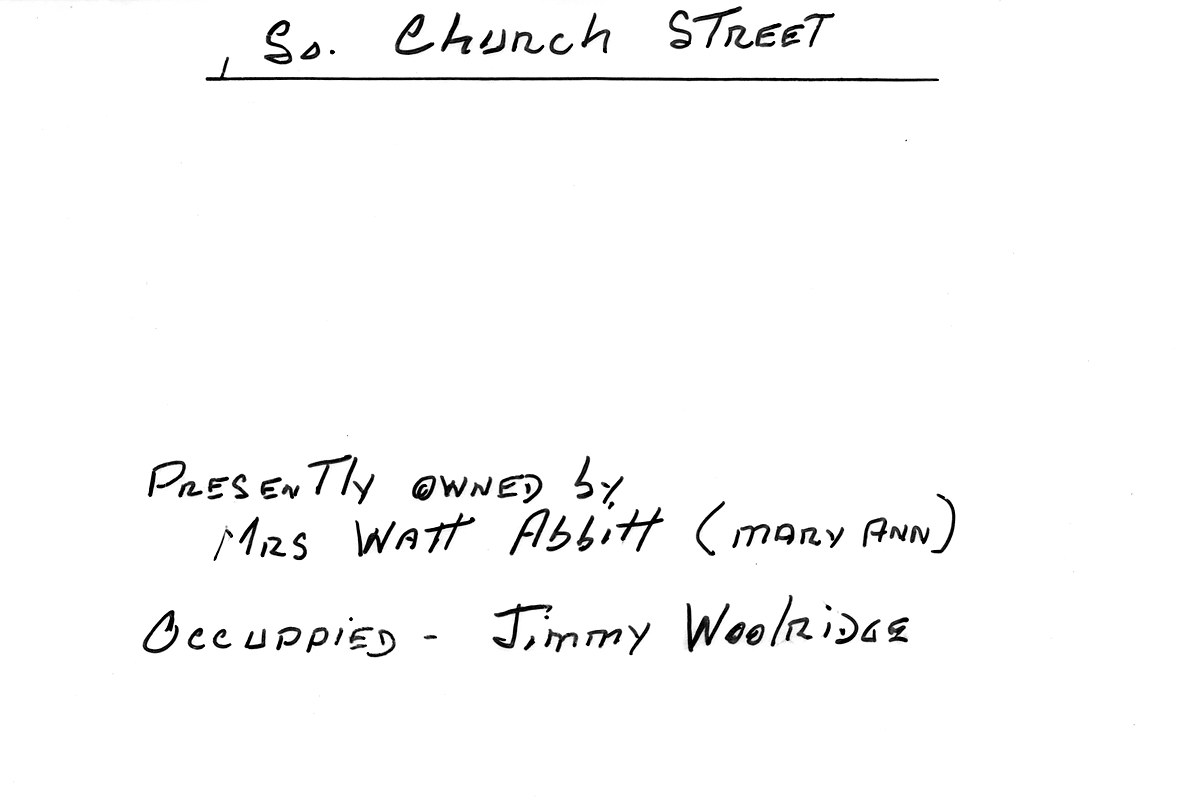 , So. Church STREET
PRESENTly OWNED by
MRS WATT Abbitt (MARY ANN)
OCCUPPIED - Jimmy WoolRiDGE